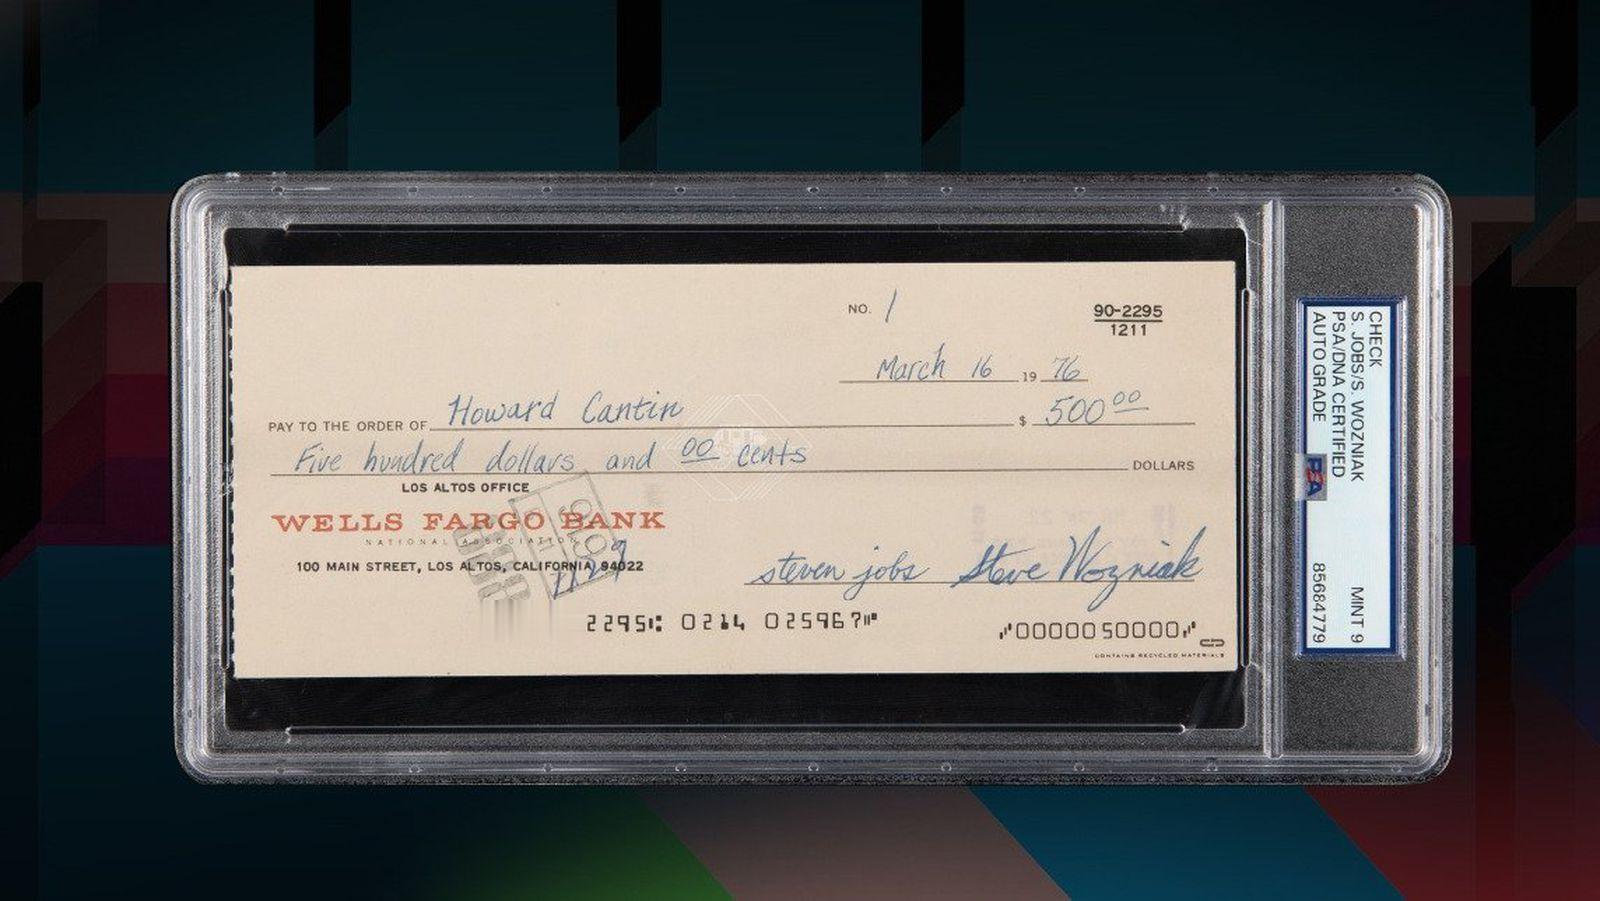 NO. 1
90-2295
1211
March 16 19 76
PAY TO THE ORDER OF Howard Cantin $ 500 00
Five hundred dollars and 00 cents DOLLARS
LOS ALTOS OFFICE
WELLS FARGO BANK
NATIONAL ASSOCIATION
100 MAIN STREET, LOS ALTOS, CALIFORNIA 94022
steven jobs Steve Wozniak
2295 0214 025967
0000050000
CONTAINS RECYCLED MATERIALS
CHECK
S. JOBS/S. WOZNIAK
PSA/DNA CERTIFIED
AUTO GRADE MINT 9
85684779
PSA